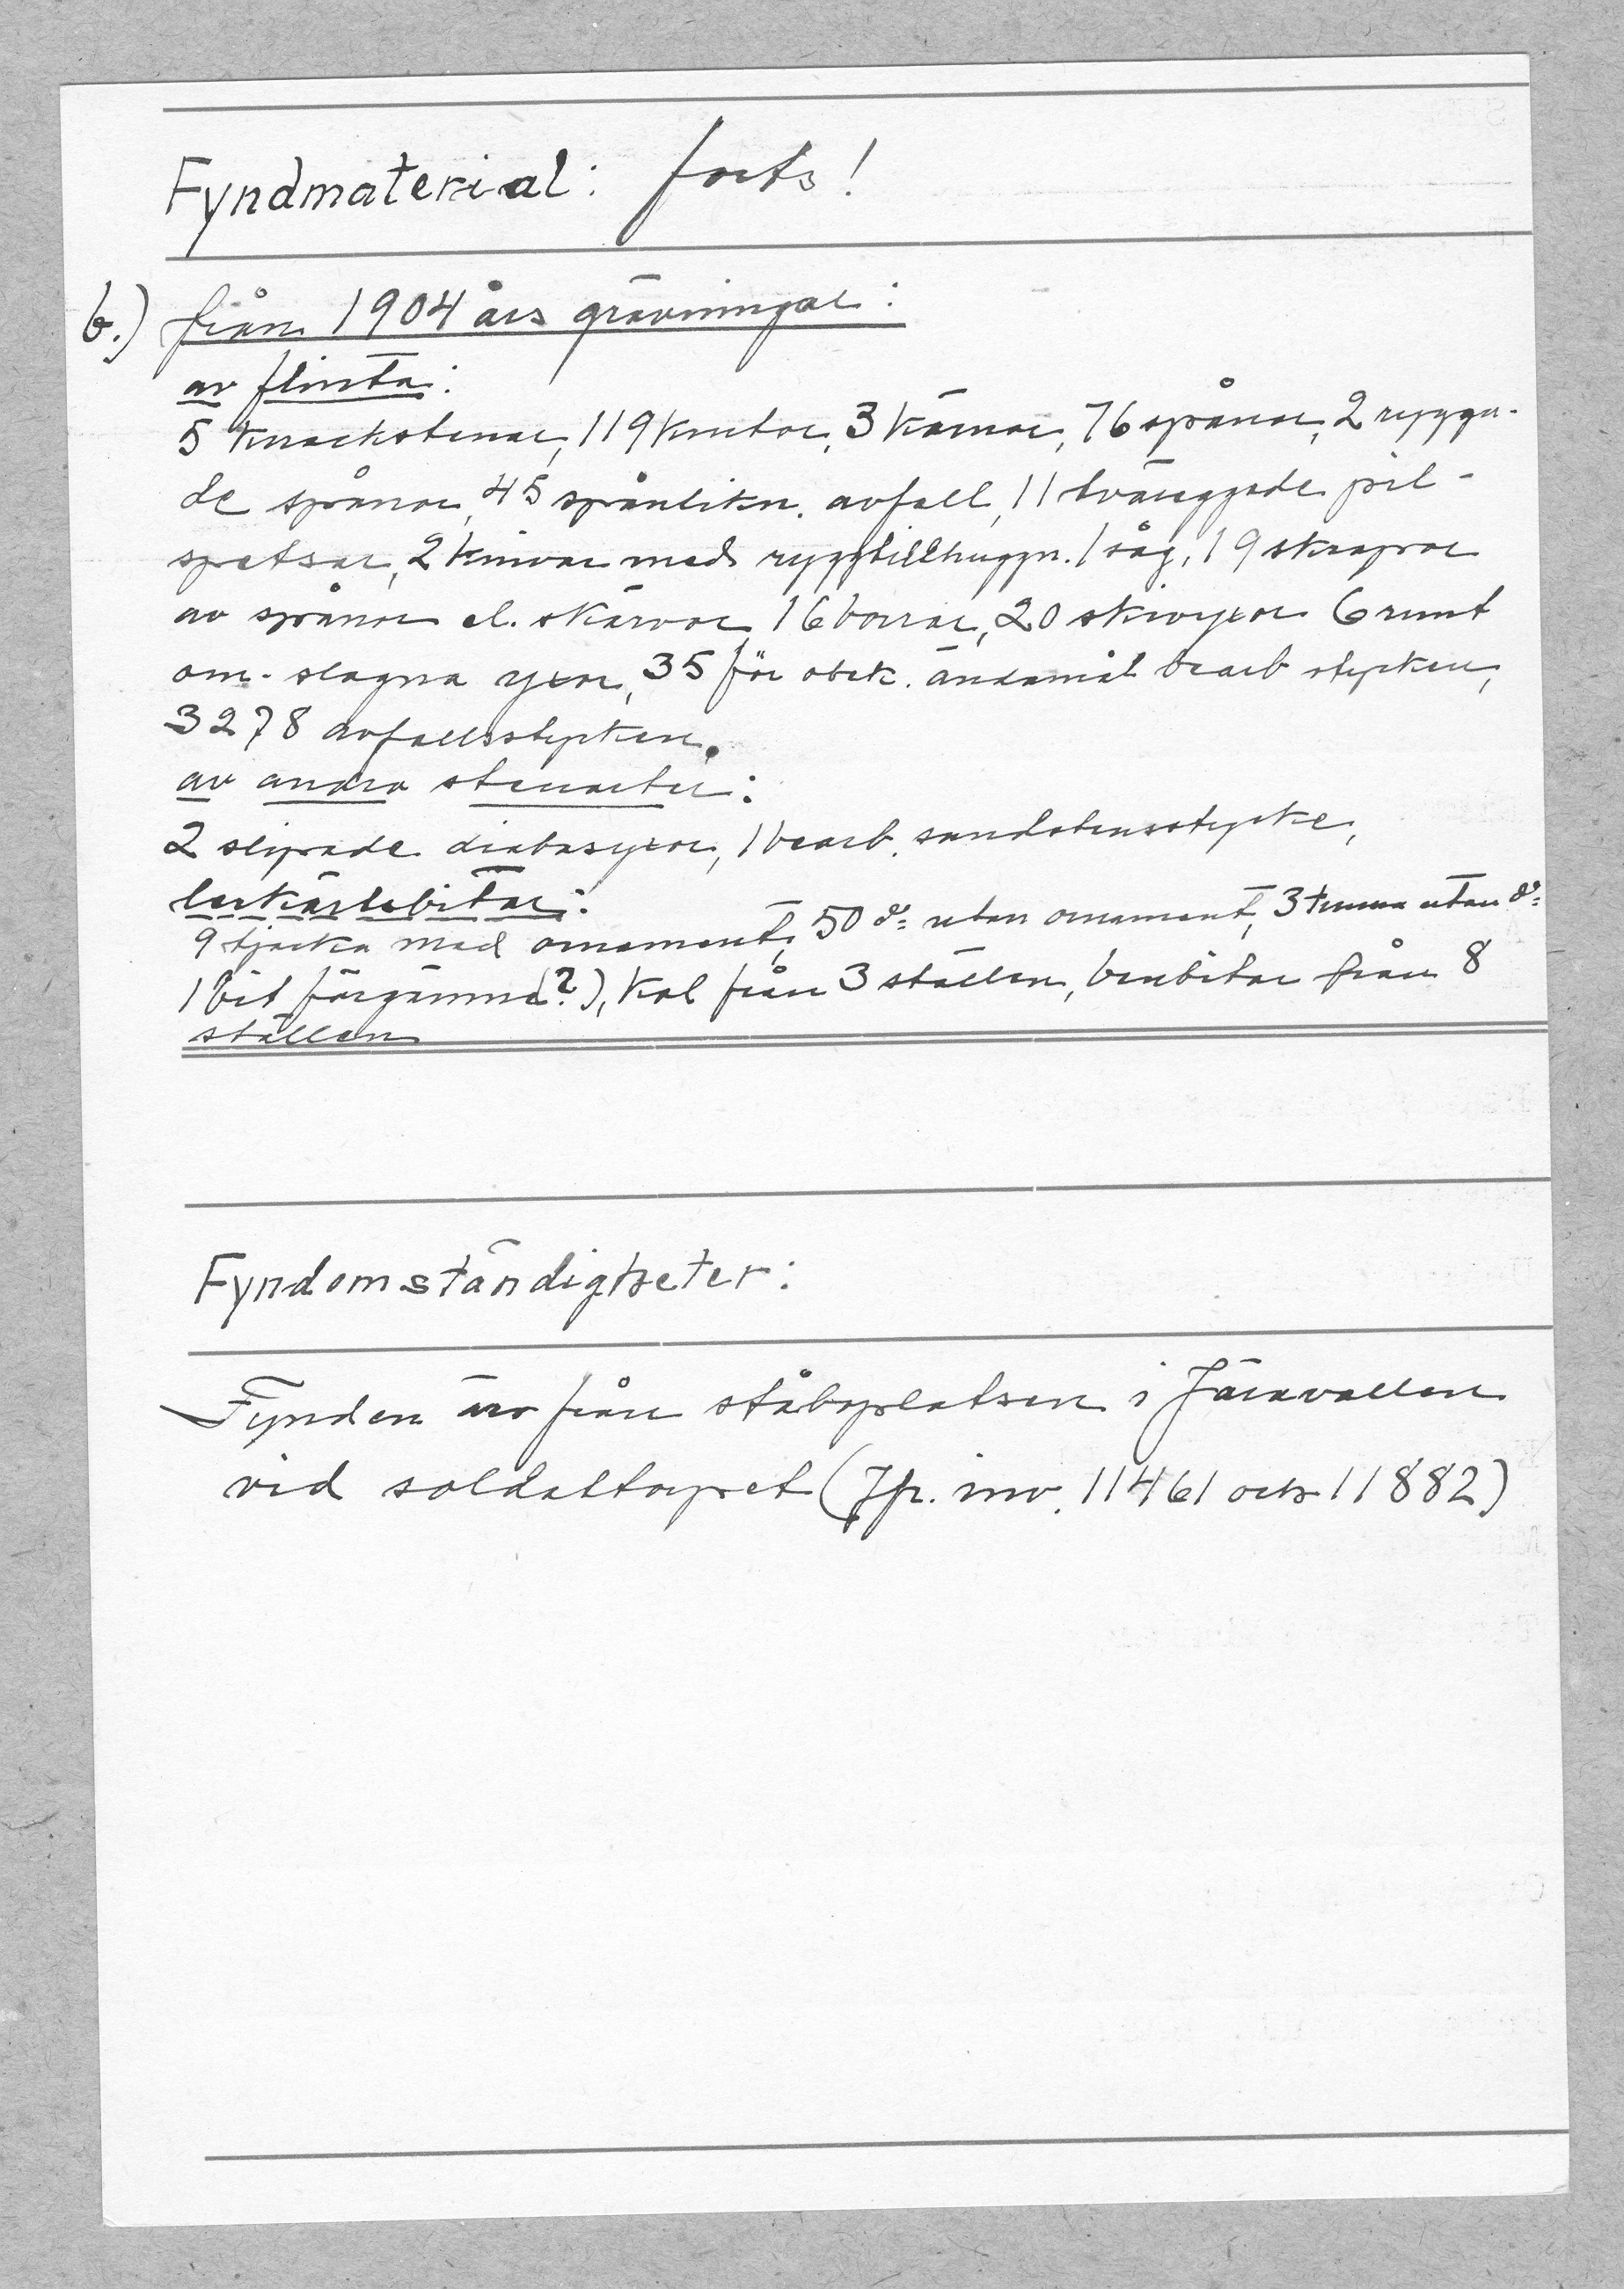 Fyndmaterial: forts!
b.) från 1904 års grävningar:
av flinta:
5 knackstenar, 119 knutor, 3 kärnor, 76 spånor, 2 rygga-
de spånor, 45 spånlikn. avfall, 11 tväreggade pil-
spetsar, 2 knivar med ryggtillhuggn. 1 såg, 19 skrapor
av spånor el. skärvor, 16 borrar, 20 skivyxor 6 runt
om- slagna yxor, 35 för obek. ändamål bearb stycken,
3278 avfallsstycken.
av andra stenarter:
2 slipade diabasyxor, 1 bearb. sandstensstycke,
lerkärlsbitar:
9 tjocka med ornament, 50 d:o utan ornament, 3 tunna utan d:o
1 bit färgämne(?), Kol från 3 ställen, benbitar från 8
ställen
Fyndomständigheter:
Fynden äro från boplatsen i Järavallen
vid soldattorpet (Jfr. inv. 11461 och 11882)